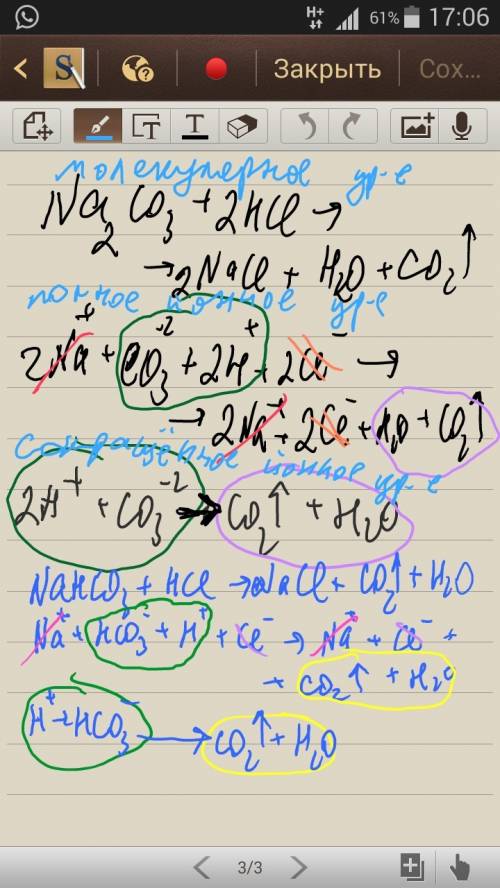 H+ 61% 17:06
Закрыть Сох...
молекулярное ур-е
Na₂CO₃ + 2HCl →
→ 2NaCl + H₂O + CO₂↑
полное ионное ур-е
2Na⁺ + CO₃⁻² + 2H⁺ + 2Cl⁻ →
→ 2Na⁺ + 2Cl⁻ + H₂O + CO₂↑
сокращённое ионное ур-е
2H⁺ + CO₃⁻² → CO₂↑ + H₂O
NaHCO₃ + HCl → NaCl + CO₂↑ + H₂O
Na⁺ + HCO₃⁻ + H⁺ + Cl⁻ → Na⁺ + Cl⁻ +
+ CO₂↑ + H₂O
H⁺ + HCO₃⁻ → CO₂↑ + H₂O
3/3